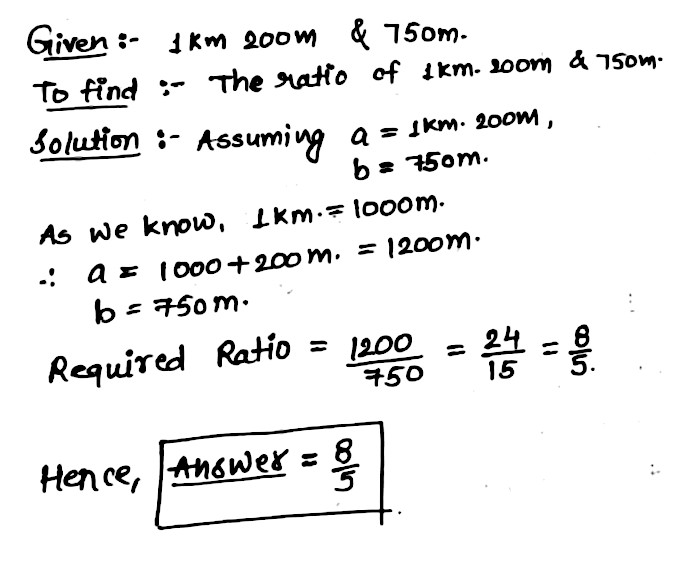 Given :- 1km 200m & 750m.
To find :- The ratio of 1km. 200m & 750m.
Solution :- Assuming a = 1km. 200m,
b = 750m.
As we know, 1km. = 1000m.
∴ a = 1000+200m. = 1200m.
b = 750m.
Required Ratio = 1200/750 = 24/15 = 8/5.
Hence, Answer = 8/5